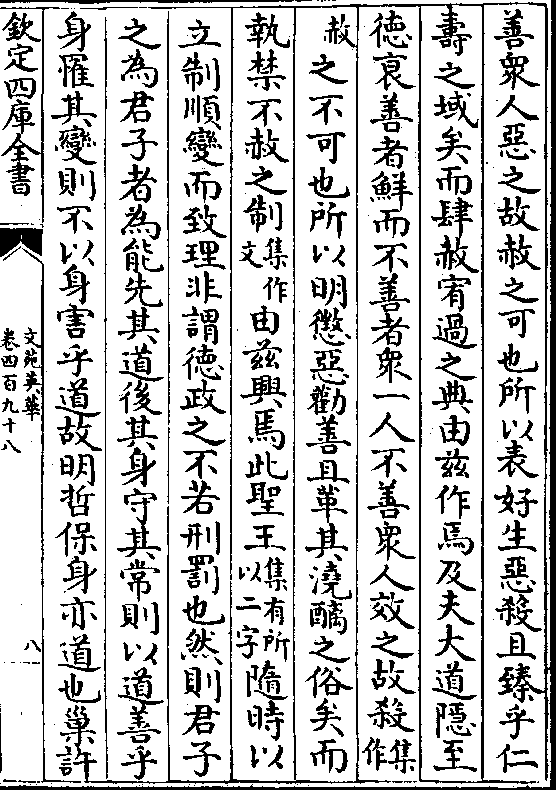 善衆人惡之故赦之可也所以表好生惡殺且臻乎仁
壽之域矣而肆赦宥過之典由兹作焉及夫大道隱至
德衰善者鮮而不善者衆一人不善衆人效之故殺集作
赦之不可也所以明懲惡勸善且革其澆醨之俗矣而
執禁不赦之制集作文由兹興焉此聖王集有所以二字隨時以
立制順變而致理非謂德政之不若刑罰也然則君子
之為君子者為能先其道後其身守其常則以道善乎
身罹其變則不以身害乎道故明哲保身亦道也巢許
欽定四庫全書
文苑英華
卷四百九十八
八